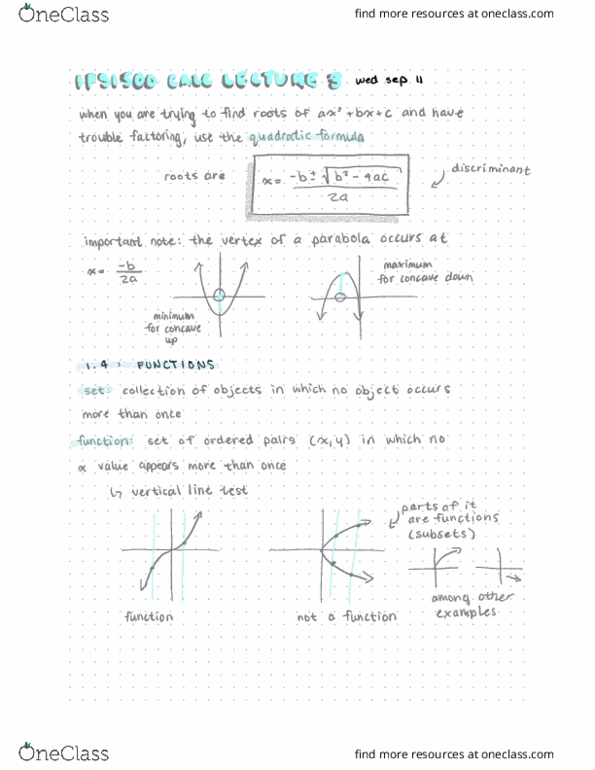 OneClass
find more resources at oneclass.com
IPS1500 CALC LECTURE 3 wed sep 11
when you are trying to find roots of ax²+bx+c and have
trouble factoring, use the quadratic formula
roots are
x = -b ± √b² - 4ac / 2a
discriminant
important note: the vertex of a parabola occurs at
x = -b / 2a
minimum
for concave
up
maximum
for concave down
1.4 : FUNCTIONS
set: collection of objects in which no object occurs
more than once
function: set of ordered pairs (x,y) in which no
x value appears more than once
↳ vertical line test
parts of it
are functions
(subsets)
function
not a function
among other
examples
OneClass
find more resources at oneclass.com